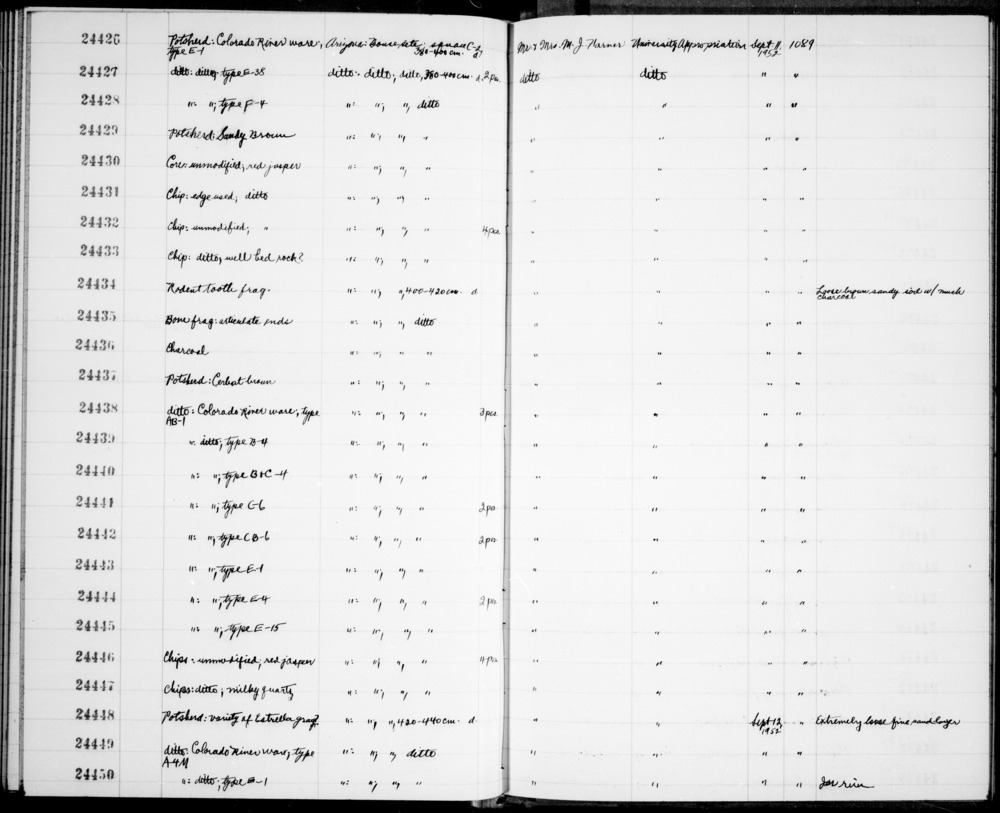 24426 Potsherd: Colorado River ware, Arizona: Bouse site, square C-2, Mr & Mrs. M. J. Harner University Appropriation Sept 11, 1089
type E-1 380-400 cm. d. 1952
24427 ditto: ditto, type E-38 ditto: ditto, ditto, 380-400cm. d. 2 pcs. ditto ditto " "
24428 ": ", type F-4 ": ", ", ditto " " " "
24429 Potsherd: Sandy Brown ": ", ", " " " " "
24430 Core: unmodified, red jasper ": ", ", " " " " "
24431 Chip: edge used, ditto ": ", ", " " " " "
24432 Chip: unmodified, " ": ", ", " 4 pcs. " " " "
24433 Chip: ditto, well bed rock? ": ", ", " " " " "
24434 Rodent tooth frag. ": ", ", 400-420cm. d " " " " Loose brown sandy soil w/ much
charcoal
24435 Bone frag: articulate ends ": ", ", ditto " " " "
24436 Charcoal ": ", ", " " " " "
24437 Potsherd: Cerbat brown ": ", ", " " " " "
24438 ditto: Colorado River ware, type ": ", ", " 3 pcs. " " " "
AB-1
24439 ": ditto, type B-4 ": ", ", " " " " "
24440 ": ", type B+C-4 ": ", ", " " " " "
24441 ": ", type C-6 ": ", ", " 2 pcs " " " "
24442 ": ", type CB-6 ": ", ", " 2 pcs " " " "
24443 ": ", type E-1 ": ", ", " " " " "
24444 ": ", type E-4 ": ", ", " 2 pcs " " " "
24445 ": ", type E-15 ": ", ", " " " " "
24446 Chips: unmodified, red jasper ": ", ", " 4 pcs " " " "
24447 Chips: ditto, milky quartz ": ", ", " " " " "
24448 Potsherd: variety of Estrella gray? ": ", ", 420-440cm. d " " Sept 12, " Extremely loose fine sand layer
1952
24449 ditto: Colorado River ware, type ": ", ", ditto " " " "
A-4M
24450 ": ditto, type E-1 ": ", ", " " " " " Jar rim